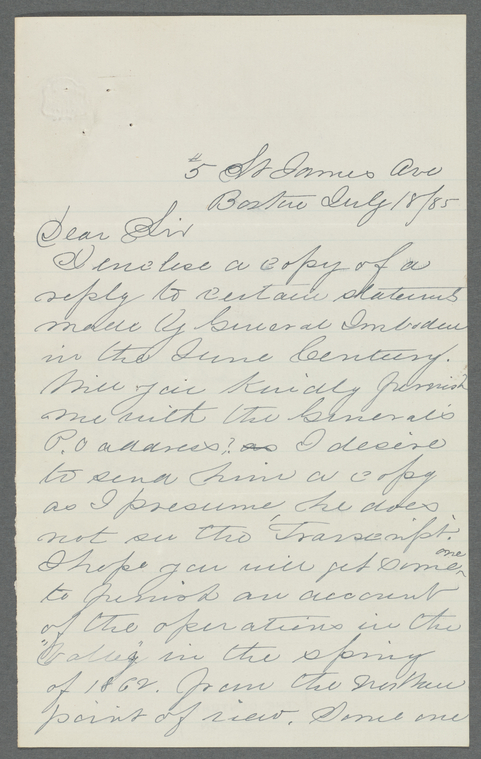 #5 St James Ave
Boston July 18/85
Dear Sir
I enclose a copy of a
reply to certain statements
made by General Imboden
in the June Century.
Will you kindly furnish
me with the General's
P.O address? as I desire
to send him a copy
as I presume, he does
not see the "Transcript".
I hope you will get some one
to furnish an account
of the operations in the
"Valley" in the spring
of 1862. from the northern
point of view. Some one